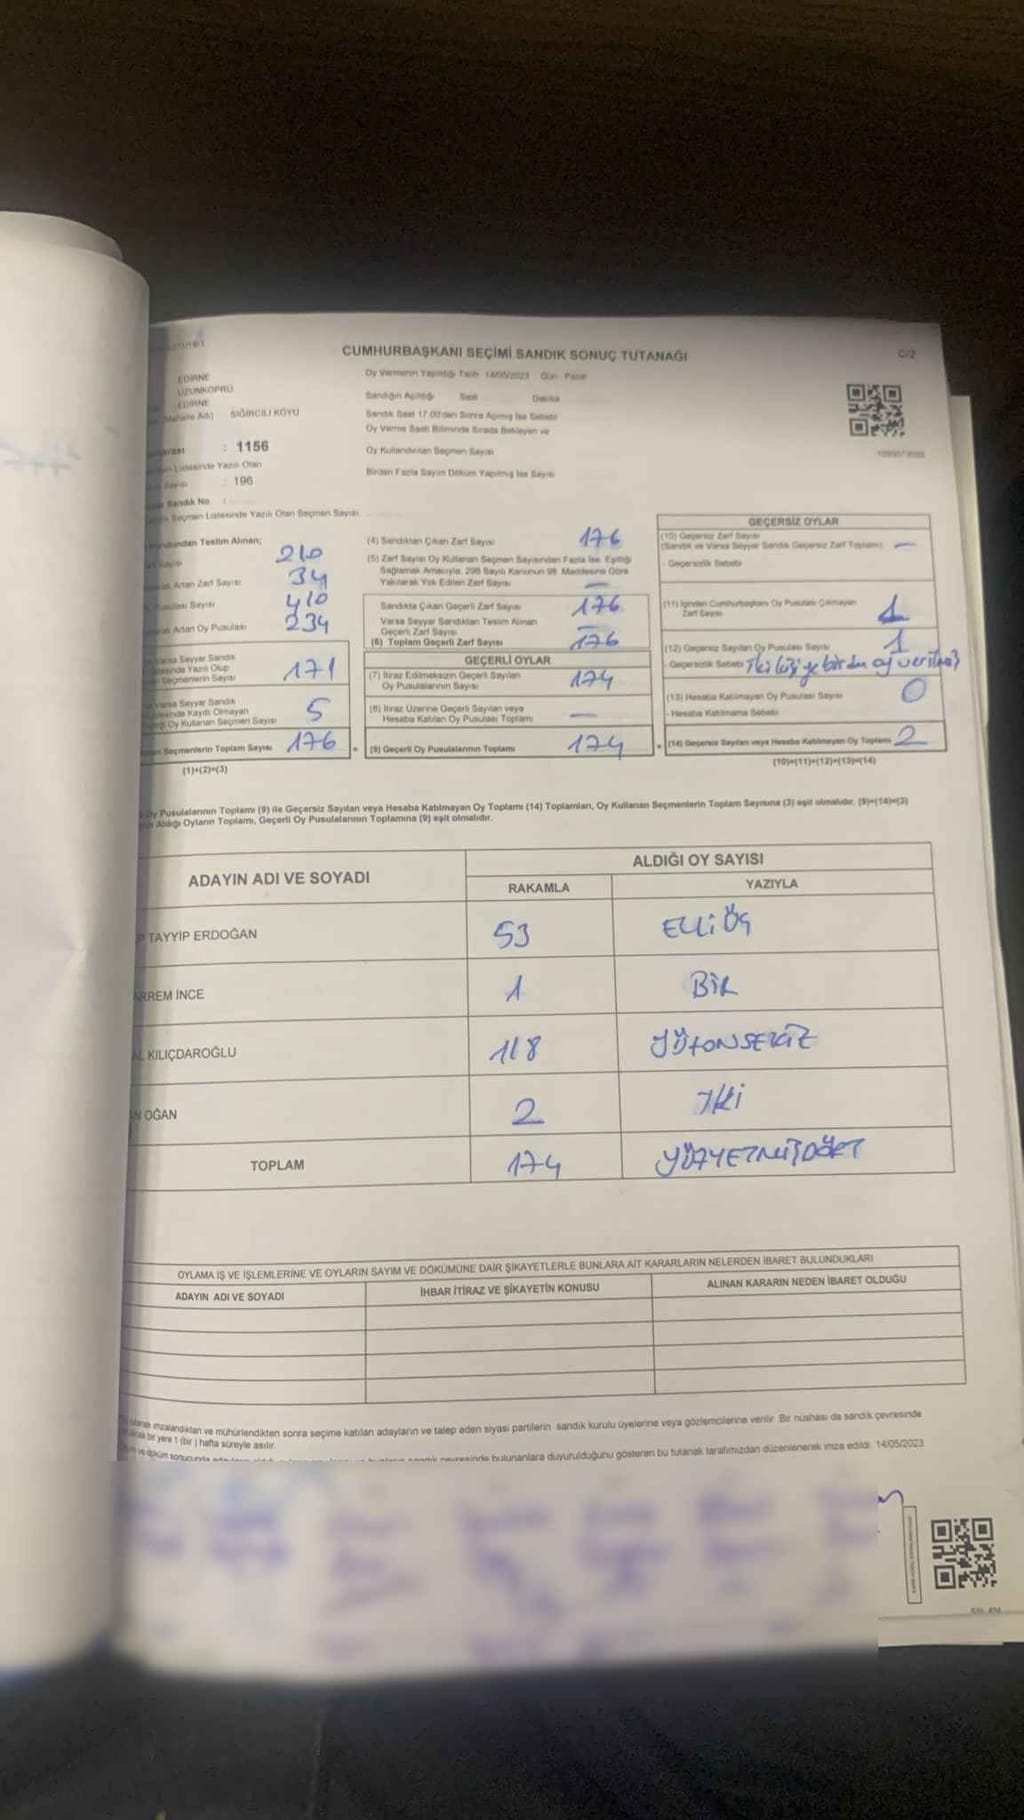 CUMHURBAŞKANI SEÇİMİ SANDIK SONUÇ TUTANAĞI
C/2
EDİRNE
UZUNKÖPRÜ
EDİRNE
Mahalle Adı) SIĞIRCILI KÖYÜ
: 1156
Listesinde Yazılı Olan
: 196
Sandık No
Seçmen Listesinde Yazılı Olan Seçmen Sayısı
Oy Vermenin Yapıldığı Tarih 14/05/2023 Gün Pazar
Sandığın Açıldığı Saat Dakika
Sandık Saat 17.00'den Sonra Açılmış İse Sebebi
Oy Verme Saati Bitiminde Sırada Bekleyen ve
Oy Kullandırılan Seçmen Sayısı
Birden Fazla Sayım Döküm Yapılmış İse Sayısı
Teslim Alınan;
Sayısı 210
Artan Zarf Sayısı 34
Pusulası Sayısı 410
Artan Oy Pusulası 234
Varsa Seyyar Sandık
Listesinde Yazılı Olup
Seçmenlerin Sayısı 171
Varsa Seyyar Sandık
Listesinde Kaydı Olmayan
Oy Kullanan Seçmen Sayısı 5
Seçmenlerin Toplam Sayısı 176
(1)+(2)=(3)
(4) Sandıktan Çıkan Zarf Sayısı 176
(5) Zarf Sayısı Oy Kullanan Seçmen Sayısından Fazla İse, Eşitliği
Sağlamak Amacıyla, 298 Sayılı Kanunun 98. Maddesine Göre
Yakılarak Yok Edilen Zarf Sayısı —
Sandıkta Çıkan Geçerli Zarf Sayısı 176
Varsa Seyyar Sandıktan Teslim Alınan
Geçerli Zarf Sayısı —
(6) Toplam Geçerli Zarf Sayısı 176
GEÇERLİ OYLAR
(7) İtiraz Edilmeksizin Geçerli Sayılan
Oy Pusulalarının Sayısı 174
(8) İtiraz Üzerine Geçerli Sayılan veya
Hesaba Katılan Oy Pusulası Toplamı —
(9) Geçerli Oy Pusulalarının Toplamı 174
GEÇERSİZ OYLAR
(10) Geçersiz Zarf Sayısı
(Sandık ve Varsa Seyyar Sandık Geçersiz Zarf Toplamı) —
- Geçersizlik Sebebi
(11) İçinden Cumhurbaşkanı Oy Pusulası Çıkmayan
Zarf Sayısı 1
(12) Geçersiz Sayılan Oy Pusulası Sayısı 1
- Geçersizlik Sebebi İki kişiye birden oy verilmiş
(13) Hesaba Katılmayan Oy Pusulası Sayısı 0
- Hesaba Katılmama Sebebi
(14) Geçersiz Sayılan veya Hesaba Katılmayan Oy Toplamı 2
(10)+(11)+(12)+(13)=(14)
Oy Pusulalarının Toplamı (9) ile Geçersiz Sayılan veya Hesaba Katılmayan Oy Toplamı (14) Toplamları, Oy Kullanan Seçmenlerin Toplam Sayısına (3) eşit olmalıdır. (9)+(14)=(3)
Aldığı Oyların Toplamı, Geçerli Oy Pusulalarının Toplamına (9) eşit olmalıdır.
ADAYIN ADI VE SOYADI
ALDIĞI OY SAYISI
RAKAMLA YAZIYLA
TAYYİP ERDOĞAN 53 ELLİÜÇ
RREM İNCE 1 BİR
AL KILIÇDAROĞLU 118 YÜZONSEKİZ
N OĞAN 2 İKİ
TOPLAM 174 YÜZYETMİŞDÖRT
OYLAMA İŞ VE İŞLEMLERİNE VE OYLARIN SAYIM VE DÖKÜMÜNE DAİR ŞİKAYETLERLE BUNLARA AİT KARARLARIN NELERDEN İBARET BULUNDUKLARI
ADAYIN ADI VE SOYADI İHBAR İTİRAZ VE ŞİKAYETİN KONUSU ALINAN KARARIN NEDEN İBARET OLDUĞU
imzalandıktan ve mühürlendikten sonra seçime katılan adayların ve talep eden siyasi partilerin sandık kurulu üyelerine veya gözlemcilerine verilir. Bir nüshası da sandık çevresinde
bir yere 1 (bir) hafta süreyle asılır.
bulunanlara duyurulduğunu gösteren bu tutanak tarafımızdan düzenlenerek imza edildi. 14/05/2023